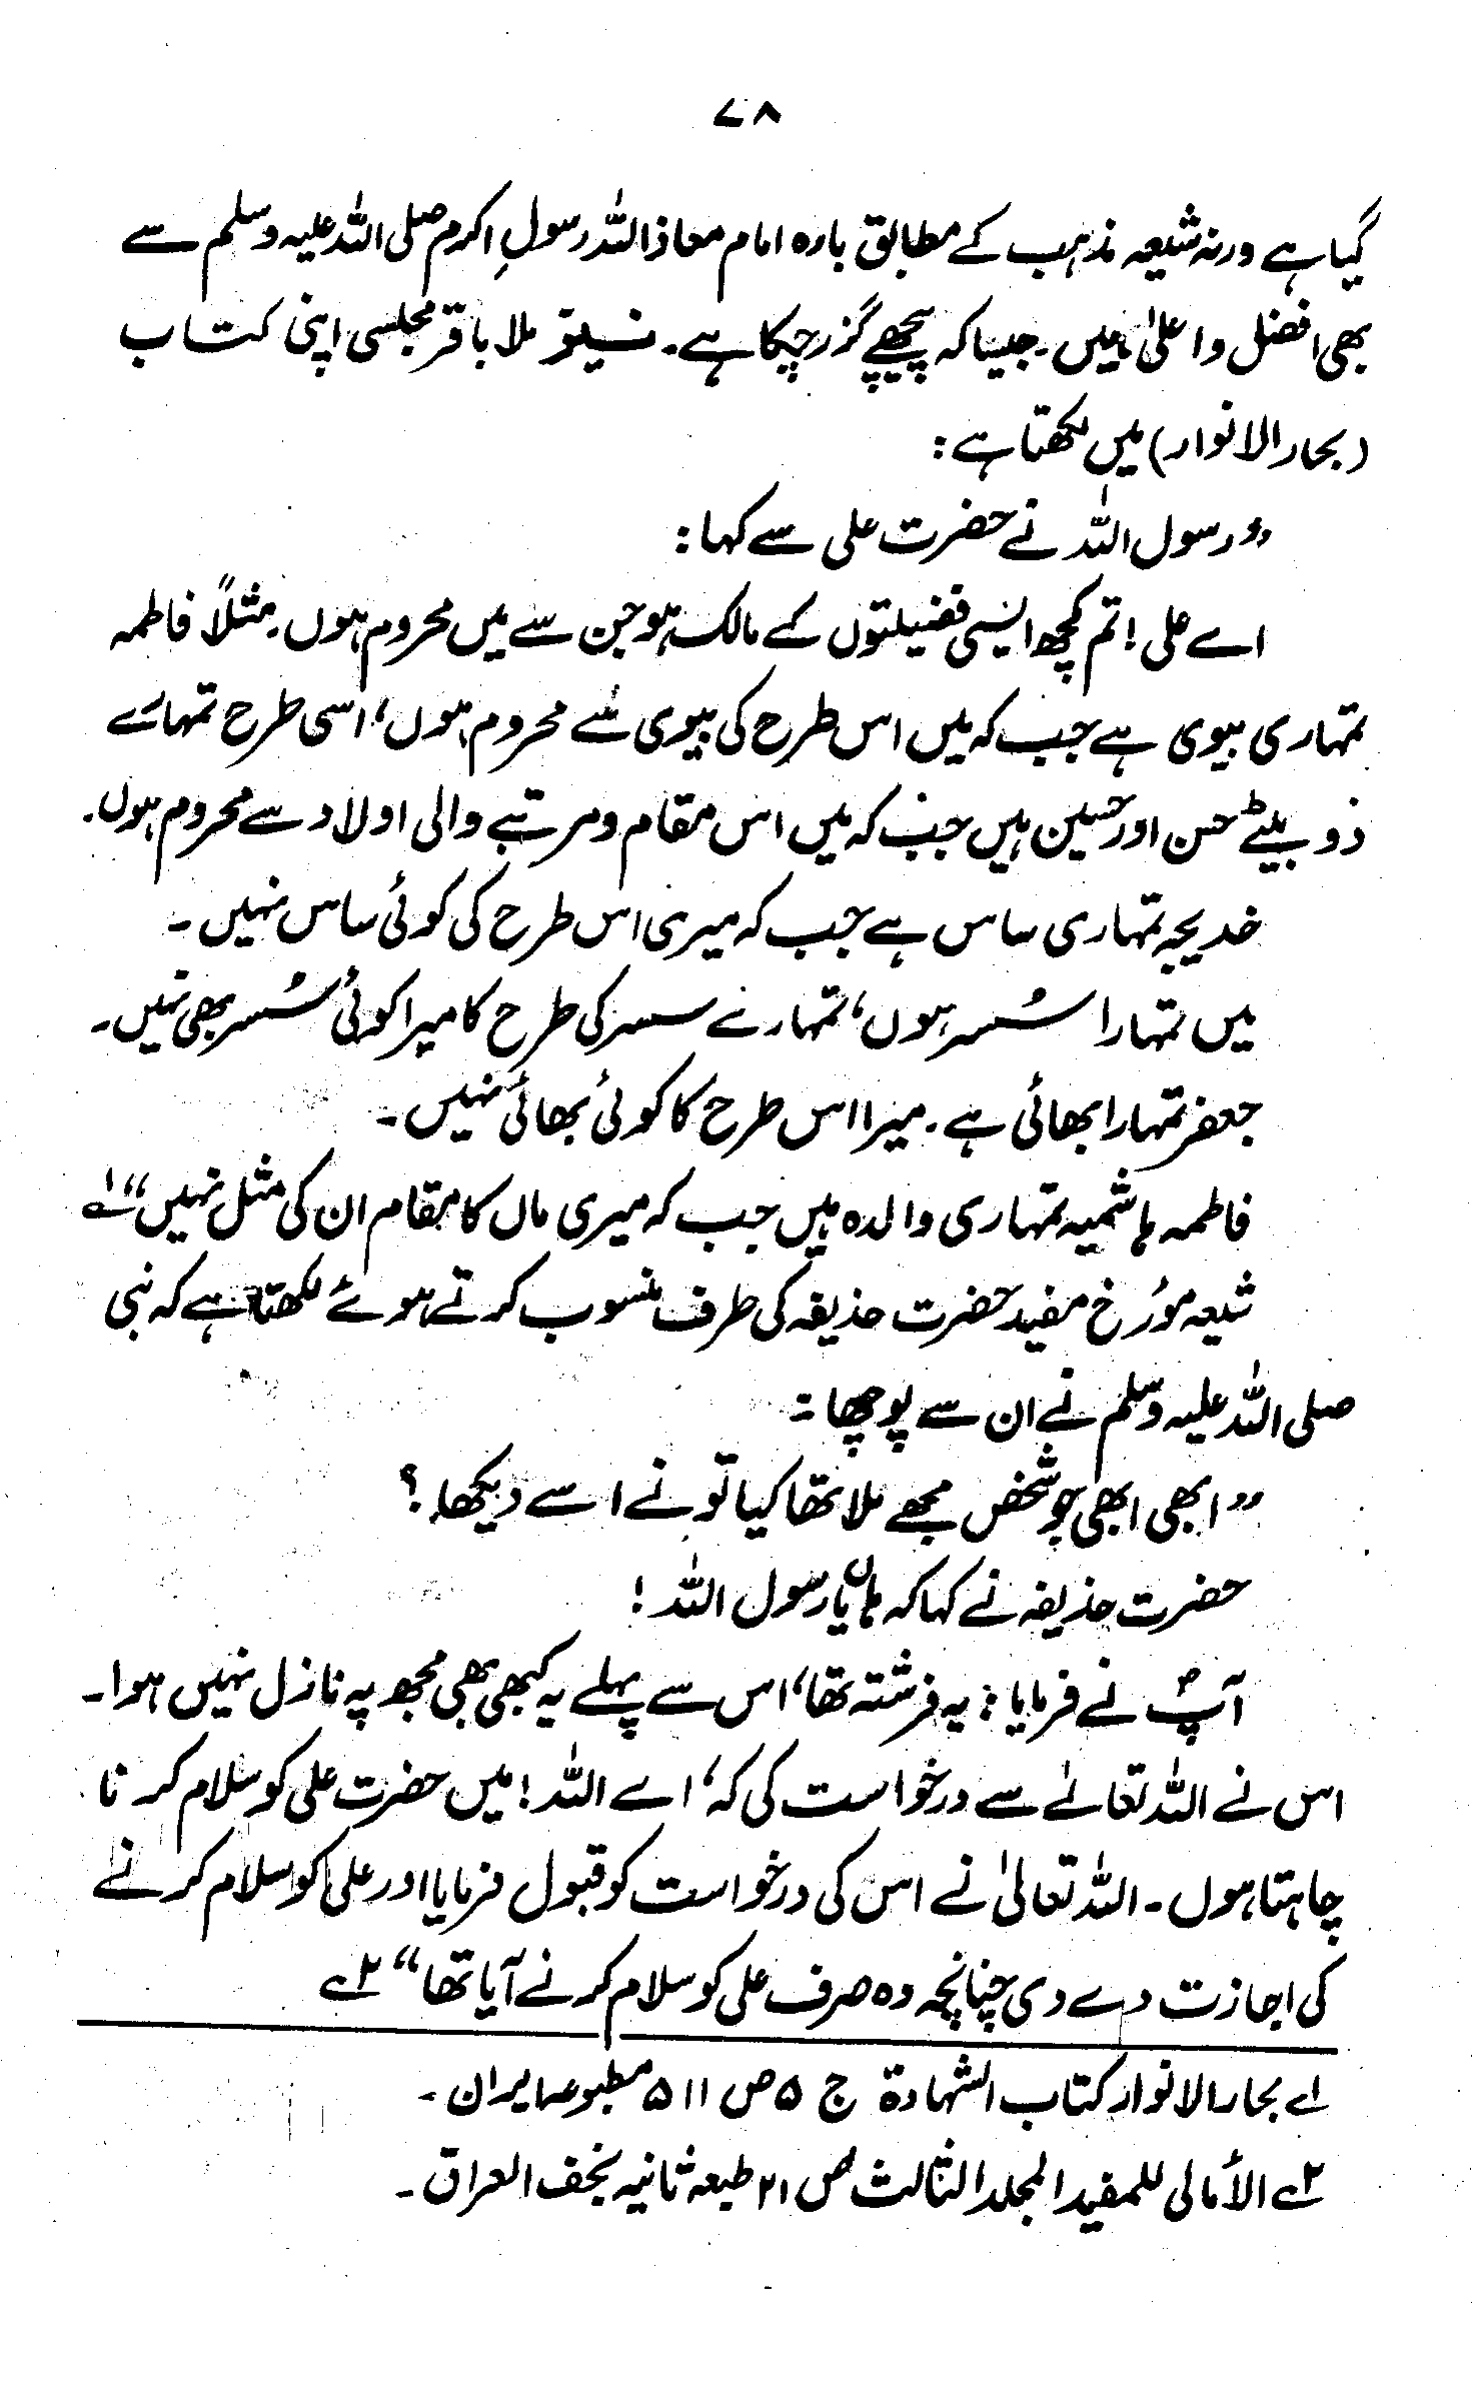 ۷۸
گیا ہے ورنہ شیعہ مذہب کے مطابق بارہ امام معاذ اللہ رسولِ اکرم صلی اللہ علیہ وسلم سے
بھی افضل و اعلیٰ ہیں۔ جیسا کہ پیچھے گزر چکا ہے۔ نسیز ملا باقر مجلسی اپنی کتاب
(بحار الانوار) میں لکھتا ہے:
”رسول اللہ نے حضرت علی سے کہا:
اے علی! تم کچھ ایسی فضیلتوں کے مالک ہو جن سے میں محروم ہوں۔ مثلاً فاطمہ
تمہاری بیوی ہے جب کہ میں اس طرح کی بیوی سے محروم ہوں، اسی طرح تمہارے
دو بیٹے حسن اور حسین ہیں جب کہ میں اس مقام و مرتبے والی اولاد سے محروم ہوں۔
خدیجہ تمہاری ساس ہے جب کہ میری اس طرح کی کوئی ساس نہیں۔
میں تمہارا سُسر ہوں، تمہارے سسر کی طرح کا میرا کوئی سُسر بھی نہیں۔
جعفر تمہارا بھائی ہے۔ میرا اس طرح کا کوئی بھائی نہیں۔
فاطمہ ہاشمیہ تمہاری والدہ ہیں جب کہ میری ماں کا مقام ان کی مثل نہیں“ ۱ے
شیعہ مؤرخ مفید حضرت حذیفہ کی طرف منسوب کرتے ہوئے لکھتا ہے کہ نبی
صلی اللہ علیہ وسلم نے ان سے پوچھا:
”ابھی ابھی جو شخص مجھے ملا تھا کیا تو نے اسے دیکھا؟
حضرت حذیفہ نے کہا کہ ہاں یا رسول اللہ!
آپؐ نے فرمایا: یہ فرشتہ تھا، اس سے پہلے یہ کبھی بھی مجھ پہ نازل نہیں ہوا۔
اس نے اللہ تعالےٰ سے درخواست کی کہ، اے اللہ! میں حضرت علی کو سلام کرنا
چاہتا ہوں۔ اللہ تعالیٰ نے اس کی درخواست کو قبول فرمایا اور علی کو سلام کرنے
کی اجازت دے دی چنانچہ وہ صرف علی کو سلام کرنے آیا تھا“ ۲ے
۱ے بحار الانوار کتاب الشہادۃ ج ۵ ص ۵۱۱ مطبوعہ ایران۔
۲ے الأمالی للمفید المجلد الثالث ص ۲۱ طبعہ ثانیہ نجف العراق۔